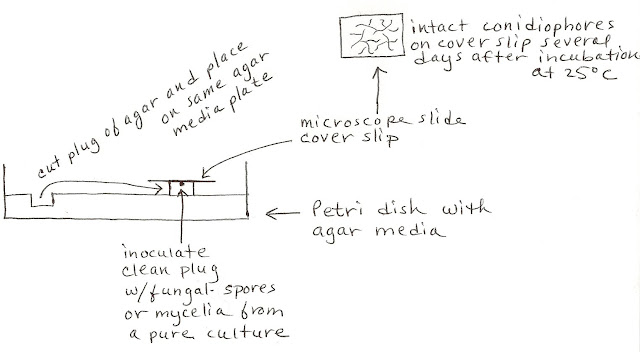 intact conidiophores
on cover slip several
days after incubation
at 25°C
cut plug of agar and place
on same agar
media plate
microscope slide
cover slip
Petri dish with
agar media
inoculate
clean plug
w/fungal spores
or mycelia from
a pure culture